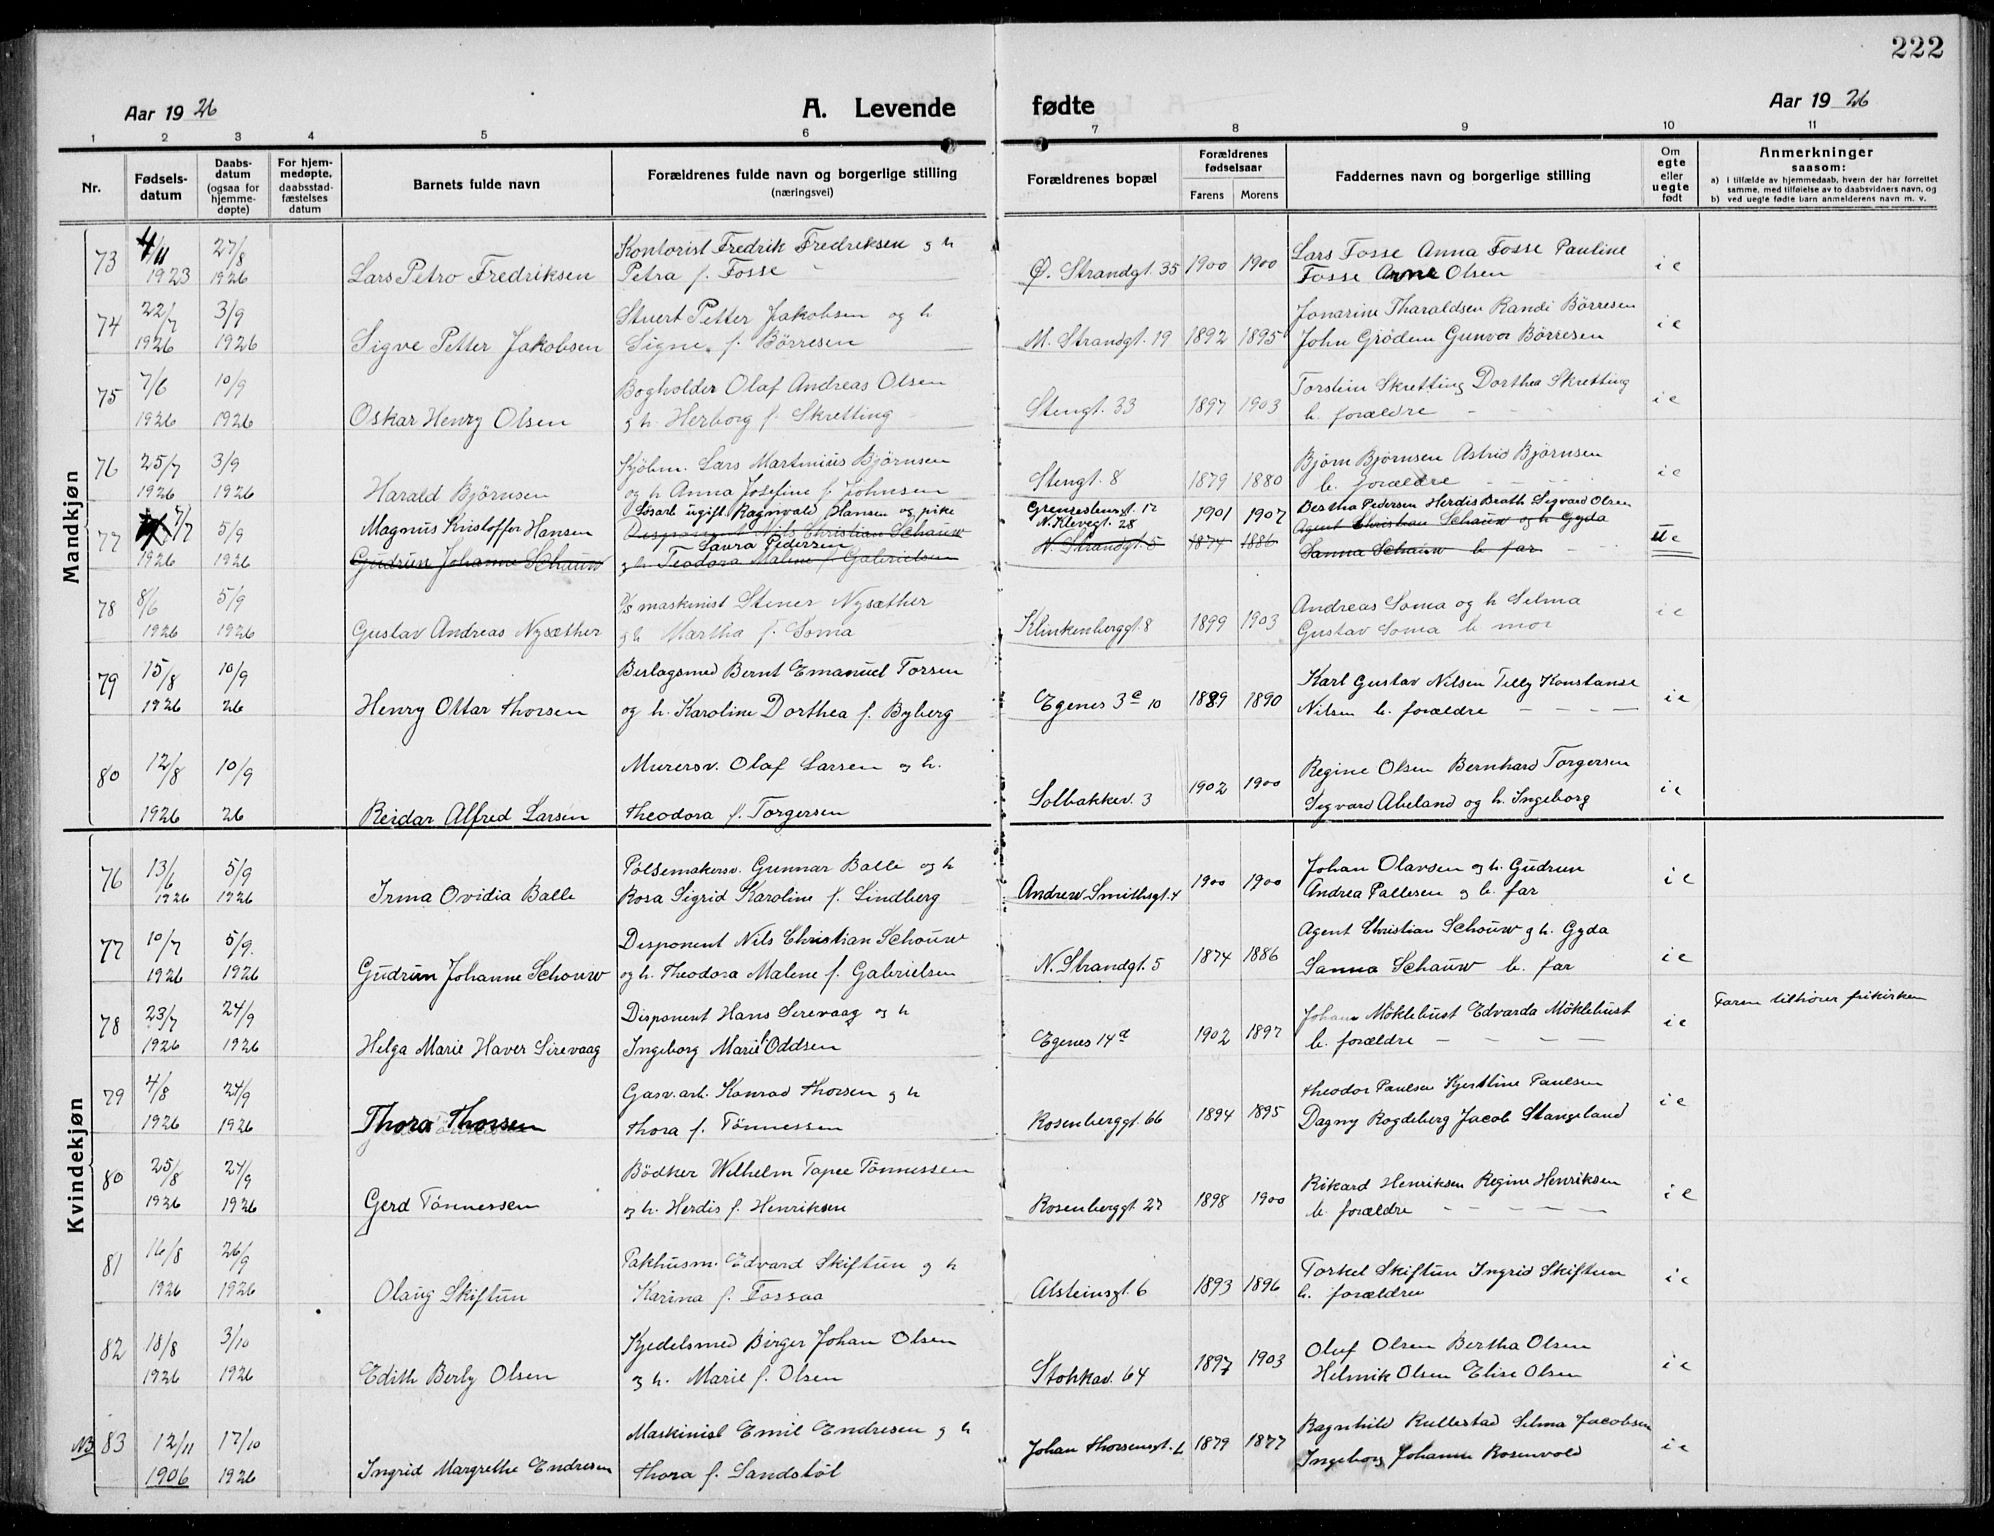 222
Aar 1926 A. Levende fødte Aar 1926
1 2 3 4 5 6 7 8 9 10 11
Nr. Fødsels-datum Daabs-datum (ogsaa for hjemme-døpte) For hjem-medøpte, daabsstad-fæstelses datum Barnets fulde navn Forældrenes fulde navn og borgerlige stilling (næringsvei) Forældrenes bopæl Forældrenes fødselsaar Farens Morens Faddernes navn og borgerlige stilling Om egte eller uegte født Anmerkninger saasom:
a) i tilfælde av hjemmedaab, hvem der har forrettet samme, med tilføielse av to daabsvidners navn, og
b) ved uegte fødte barn anmelderens navn m. v.
Mandkjøn
73 4/11 27/8 Kontorist Fredrik Fredriksen og h Lars Fosse Anna Fosse Pauline
1923 1926 Lars Petro Fredriksen Petra f. Fosse Ø. Strandgt. 35 1900 1900 Fosse Arne Olsen i e
74 22/7 3/9 Stuert Petter Jakobsen og h Jonarine Tharaldsen Randi Börresen
1926 1926 Sigve Petter Jakobsen Signe f. Börresen M. Strandgt. 19 1892 1895 John Grödem Gunvor Börresen i e
75 7/6 10/9 Bogholder Olaf Andreas Olsen Torstein Skretting Dorthea Skretting
1926 1926 Oskar Henry Olsen og h. Herborg f. Skretting Stengt. 33 1897 1903 b. forældre i e
76 25/7 3/9 Kjöbm. Lars Martinius Björnsen Björn Björnsen Astrid Björnsen
1926 1926 Harald Björnsen og h Anna Josefine f. Johnsen Stengt. 8 1879 1880 b. forældre i e
77 7/7 5/9 Magnus Kristoffer Hansen Lösarb ugift Ragnvald Hansen og pike 1901 1907 Bertha Pedersen Herdis Brath Sigvard Olsen
Disponent Nils Christian Schauw N. Klevegt. 28 Agent Christian Schauw og h Gyda
Laura Pedersen
1926 1926 Gudrun Johanne Schauw og h Teodora Maline f. Gabrielsen N. Strandgt. 5 1874 1886 Sanna Schauw b. far u e
78 8/6 5/9 D/S maskinist Stener Nysæther Andreas Soma og h Selma
1926 1926 Gustav Andreas Nysæther og h Martha f. Soma Klinkenberggt. 8 1899 1903 Gustav Soma b mor i e
79 15/8 10/9 Beslagsmed Bernt Emanuel Torsen Karl Gustav Nilsen Telly Konstanse
1926 26 Henry Ottar Thorsen og h. Karoline Dorthea f. Byberg Egenes 3e 10 1889 1890 Nilsen b. forældre i e
80 12/8 10/9 Murersv. Olaf Larsen og h. Regine Olsen Bernhard Torgersen
1926 26 Reidar Alfred Larsen Theodora f. Torgersen Solbakkev. 3 1902 1900 Sigvard Abeland og h. Ingeborg i e
Kvindekjøn
76 13/6 5/9 Pölsemakersv. Gunnar Balle og h Johan Olavsen og h. Gudrun
1926 1926 Irma Ovidia Balle Rosa Sigrid Karoline f. Lindberg Andrew Smithsgt. 4 1900 1900 Andrea Pallesen og b. far i e
77 10/7 5/9. Disponent Nils Christian Schouw Agent Christian Schouw og h. Gyda
1926 1926 Gudrun Johanne Schouw og h. Theodora Malene f. Gabrielsen N. Strandgt. 5 1874 1886 Sanna Schauw b. far i e
78 23/7 24/9 Disponent Hans Sirevaag og h Johan Möklebust Edvarda Möklebust Faren tilhörer frikirken
1926 1926 Helga Marie Haver Sirevaag Ingeborg Marie f Oddsen Egenes 14d 1902 1897 b. forældre i e
79 4/8 24/9 Gasv. arb. Konrad Thorsen og h Theodor Paulsen Kjerstine Paulsen
1926 1926 Thora Thorsen Thora f. Tönnessen Rosenberggt. 66 1894 1895 Dagny Rogdeberg Jacob Stangeland i e
80 25/8 24/9 Bödker Wilhelm Tapee Tönnessen Rikard Henriksen Regine Henriksen
1926 1926 Gerd Tönnessen og h. Herdis f. Henriksen Rosenberggt 27 1898 1900 b. forældre i e
81 16/8 26/9 Pakhusm. Edvard Skiftun og h Torkel Skiftun Ingrid Skiftun
1926 1926 Olaug Skiftun Karina f. Fossaa Alsteinsgt. 6 1893 1896 b. forældre i e
82 18/8 3/10 Kjedelsmed Birger Johan Olsen Oluf Olsen Bertha Olsen
1926 1926 Edith Berly Olsen og h. Marie f. Olsen Stokkav. 64 1897 1903 Helmik Olsen Elise Olsen i e
NB 83 12/11 17/10 Maskinist Emil Endresen og h Ragnhild Rullestad Selma Jacobsen
1906 1926 Ingrid Margrethe Endresen Thora f. Sandstöl Johan Thorsensgt. 1879 1877 Ingeborg Johanne Rosenvold i e